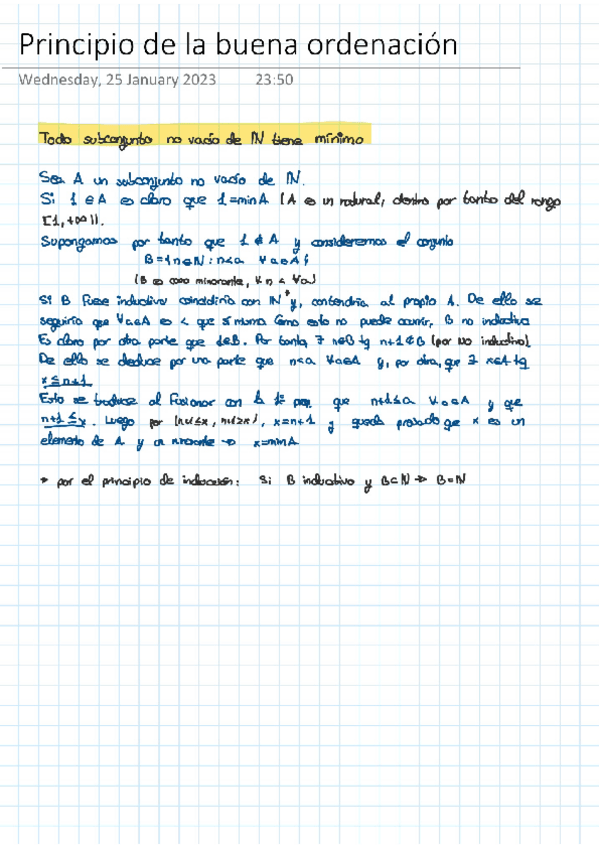 Principio de la buena ordenación
Wednesday, 25 January 2023 23:50
Todo subconjunto no vacío de ℕ tiene mínimo
Sea A un subconjunto no vacío de ℕ.
Si 1 ∈ A es claro que 1 = min A (A es un natural, dentro por tanto del rango
[1, +∞)).
Supongamos por tanto que 1 ∉ A y consideremos el conjunto
B = {n ∈ ℕ : n < a ∀a ∈ A}
(B es como minorante, ∀n < ∀a)
Si B fuese inductivo coincidiría con ℕ* y, contendría al propio A. De ello se
seguiría que ∀a∈A es < que sí mismo. Como esto no puede ocurrir, B no inductivo
Es claro por otra parte que 1∈B. Por tanto, ∃ n∈B tq n+1 ∉ B (por no inductivo).
De ello se deduce por una parte que n<a ∀a∈A y, por otra, que ∃ x∈A tq
x ≤ n+1
Esto se traduce al fusionar con la 1ª que n+1 ≤ a ∀a∈A y que
n+1 ≤ x. Luego por , x = n+1 y queda probado que x es un
elemento de A y un minorante → x = min A
* por el principio de inducción: Si B inductivo y B⊂ℕ → B=ℕ